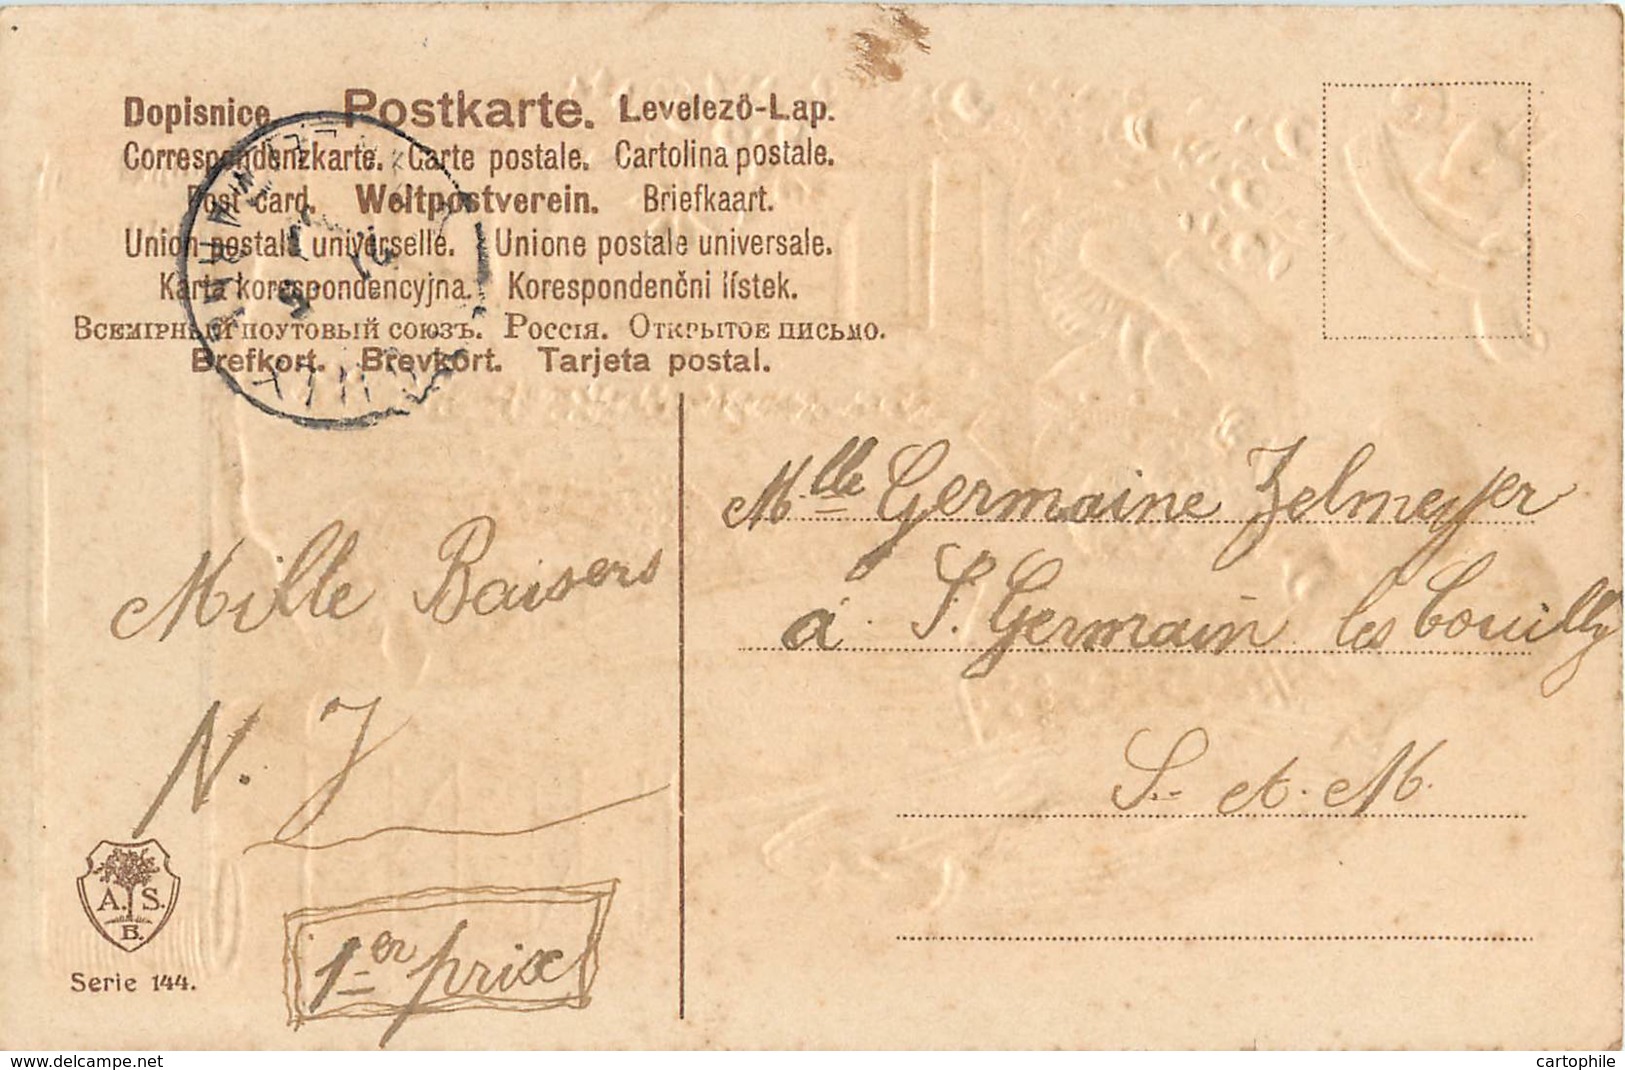 Dopisnice. Postkarte. Levelező-Lap.
Correspondenzkarte. Carte postale. Cartolina postale.
Post card. Weltpostverein. Briefkaart.
Union postale universelle. Unione postale universale.
Karta korespondencyjna. Korespondenčni lístek.
Всемірный поутовый союзъ. Россія. Открытое письмо.
Brefkort. Brevkort. Tarjeta postal.
Mlle Germaine Zelmeyer
à S. Germain les Couilly
S.- et. M.
Mille Baisers
N. J
A. S.
B.
Serie 144.
1er prix
www.delcampe.net
cartophile